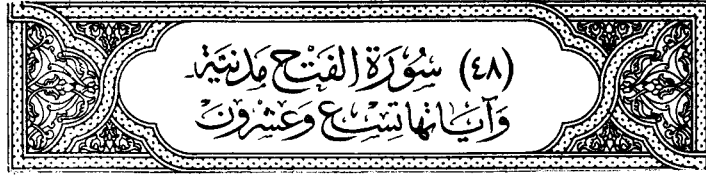 (٤٨) سُورَة الفَتْح مَدنيَّة
وَآيَاتها تِسْع وَعشرُونَ